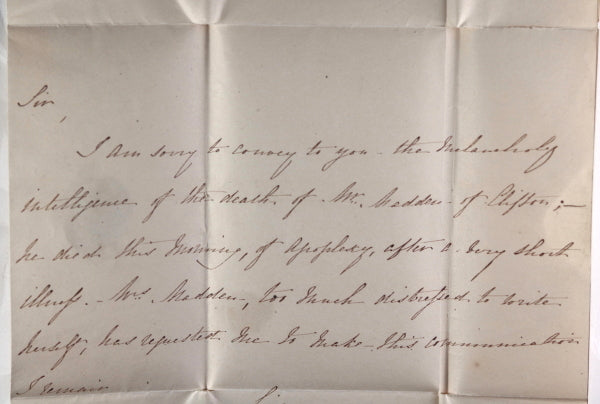 Sir,
I am sorry to convey to you - the Melancholy
intelligence of the death of Mr. Madden of Clifton; —
he died this Morning, of Apoplexy, after a very short
illness. - Mrs. Madden, too much distressed to write
herself, has requested me to make this communication
I remain
Sir